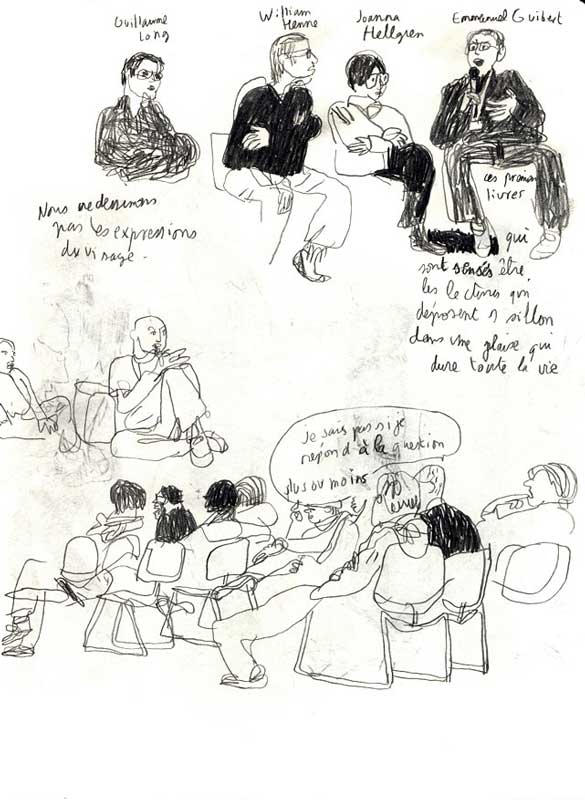 Guillaume
Long
William
Henne
Joanna
Hellgren
Emmanuel Guibert
Nous redessinons
pas les expressions
du visage.
ces premiers
livres
qui
sont sensés être
les lectures qui
déposent 1 sillon
dans une glaise qui
dure toute la vie
je sais pas si je
répond à la question
plus ou moins